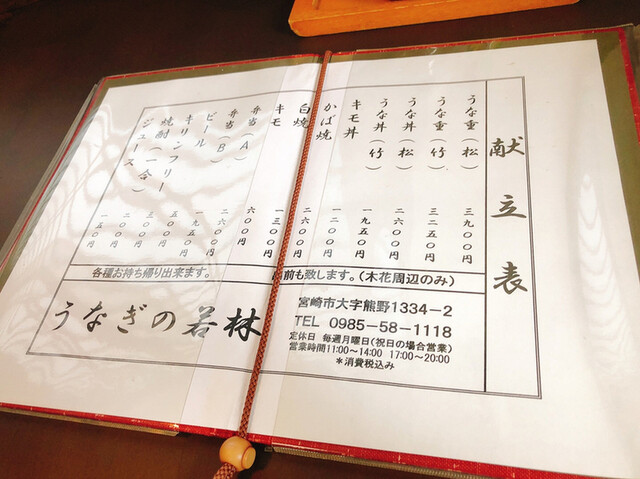 献立表
うな重(松)
うな重(竹)
うな丼(松)
うな丼(竹)
キモ丼
かば焼
白焼
キモ
弁当(A)
弁当(B)
ビール
キリンフリー
焼酎(一合)
ジュース
三九〇〇円
三二五〇円
二六〇〇円
一九五〇円
一二〇〇円
二六〇〇円
一三〇〇円
六〇〇円
二六〇〇円
一九五〇円
五〇〇円
一五〇円
各種お持ち帰り出来ます。
前も致します。(木花周辺のみ)
うなぎの若林
宮崎市大字熊野1334-2
TEL 0985-58-1118
定休日 毎週月曜日(祝日の場合営業)
営業時間11:00~14:00 17:00~20:00
*消費税込み